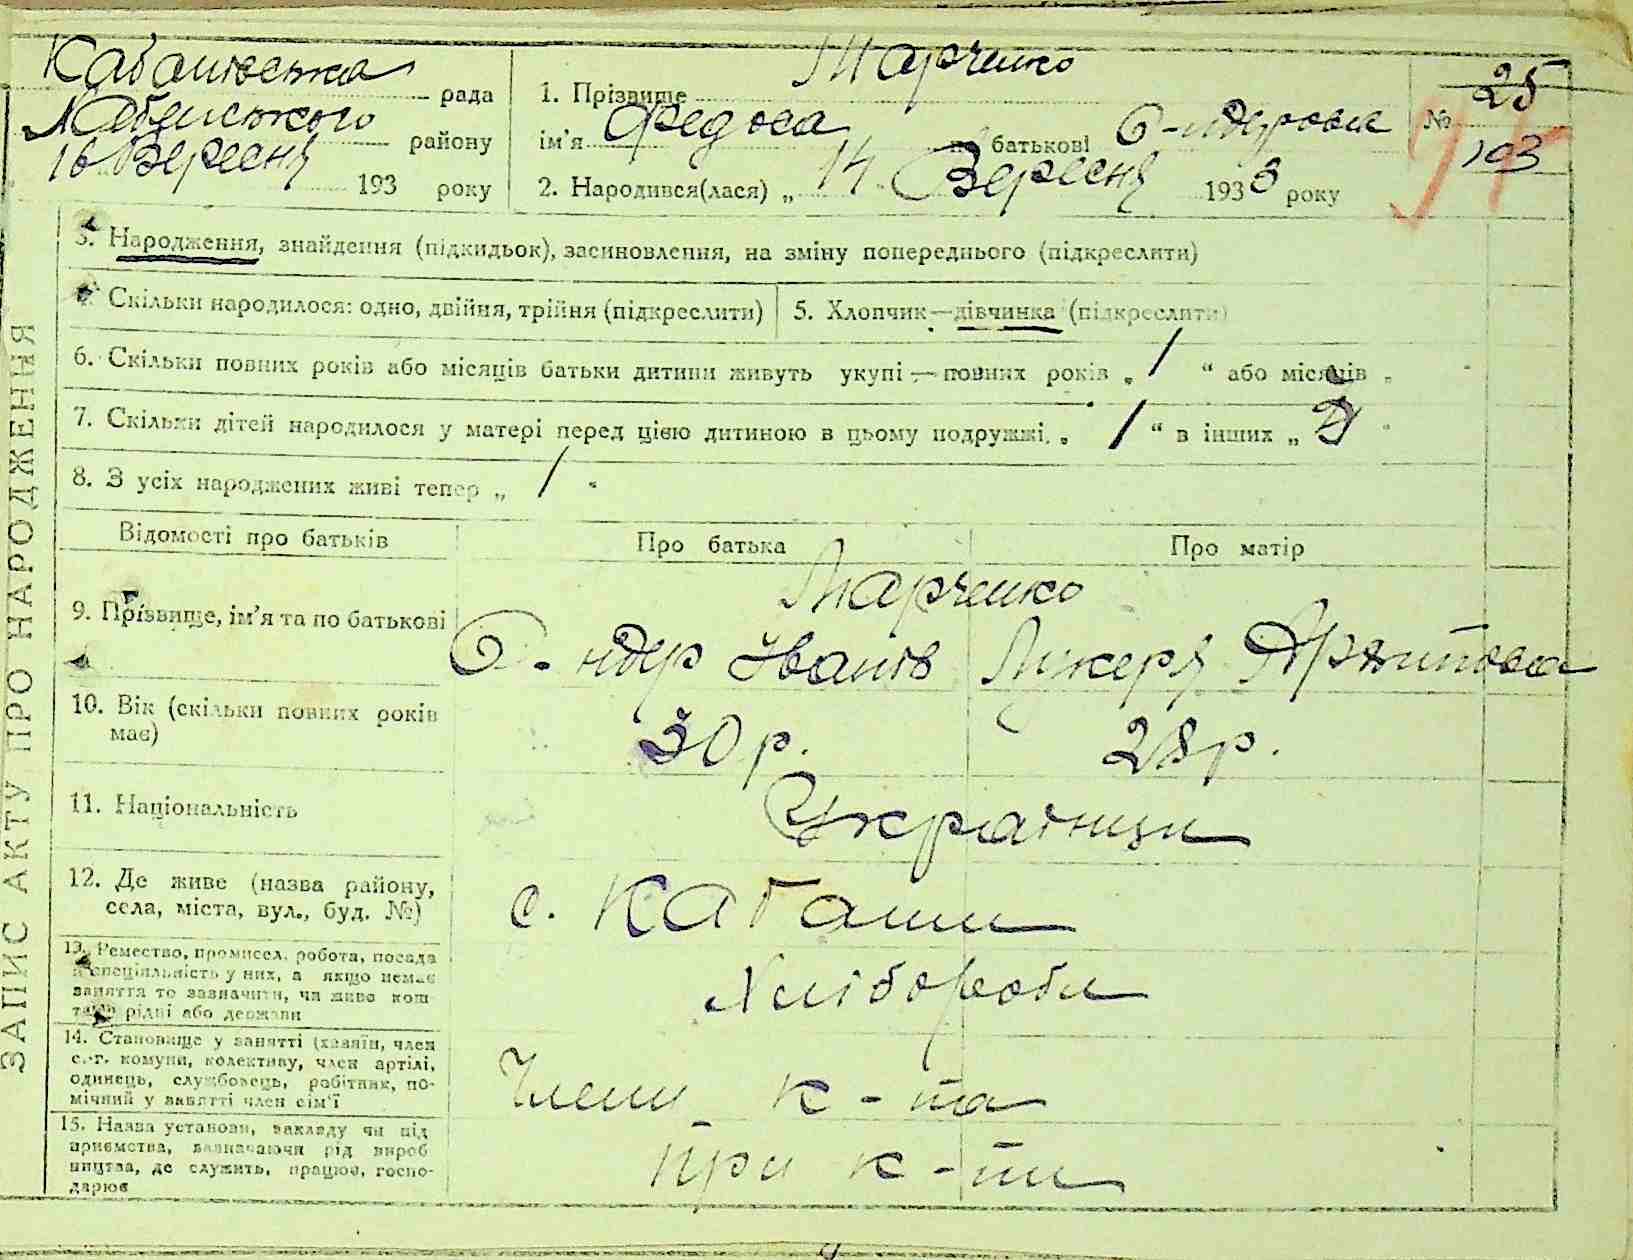 ЗАПИС АКТУ ПРО НАРОДЖЕННЯ
Кабанівська рада
району
16 Вересня 193 року
1. Прізвище Марченко
ім'я Федоса по батькові О-ндровна
2. Народився(лася) „ 14 Вересня 1933 року
№ 25
103
3. Народження, знайдення (підкидьок), засиновлення, на зміну попереднього (підкреслити)
4. Скільки народилося: одно, двійня, трійня (підкреслити)
5. Хлопчик—дівчинка (підкреслити)
6. Скільки повних років або місяців батьки дитини живуть укупі — повних років „ 1 “ або місяців „
7. Скільки дітей народилося у матері перед цією дитиною в цьому подружжі „ 1 “ в інших „
8. З усіх народжених живі тепер „ 1
Відомості про батьків
Про батька
Про матір
9. Прізвище, ім'я та по батькові
Марченко
О-ндер Іванів
Лукеря Архиповна
10. Вік (скільки повних років має)
30 р.
28 р.
11. Національність
Українци
12. Де живе (назва району,
села, міста, вул., буд. №)
с. Кабани
13. Ремество, промисел, робота, посада
й спеціяльність у них, а якщо немає
заняття то зазначити, чи живе кош
тами рідні або держави
Хлібороби
14. Становище у занятті (хазяїн, член
с.-г. комуни, колективу, член артілі,
одинець, службовець, робітник, по-
мічний у занятті член сім'ї
Члени к-та
15. Назва установи, закладу чи під
приємства, зазначаючи рід вироб
ництва, де служить, працює, госпо-
дарює
При к-ти